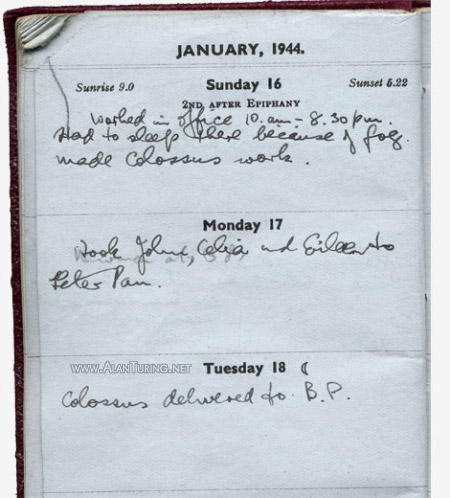 JANUARY, 1944.
Sunrise 9.0 Sunday 16 Sunset 5.22
2ND AFTER EPIPHANY
Worked in office 10.am – 8.30 pm.
Had to sleep there because of fog.
made Colossus work.
Monday 17
Took John, Celia and Eileen to
Peter Pan.
www.AlanTuring.net Tuesday 18
Colossus delivered to B.P.